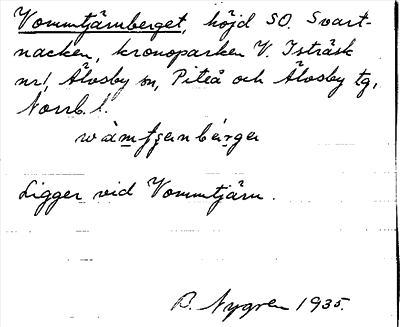 Vommtjärnberget, höjd SO. Svart-
nacken, kronoparken V. Isträsk
nr 1, Älvsby sn, Piteå och Älvsby tg,
Norrb. l.
Ligger vid Vommtjärn.
B. Nygren 1935.